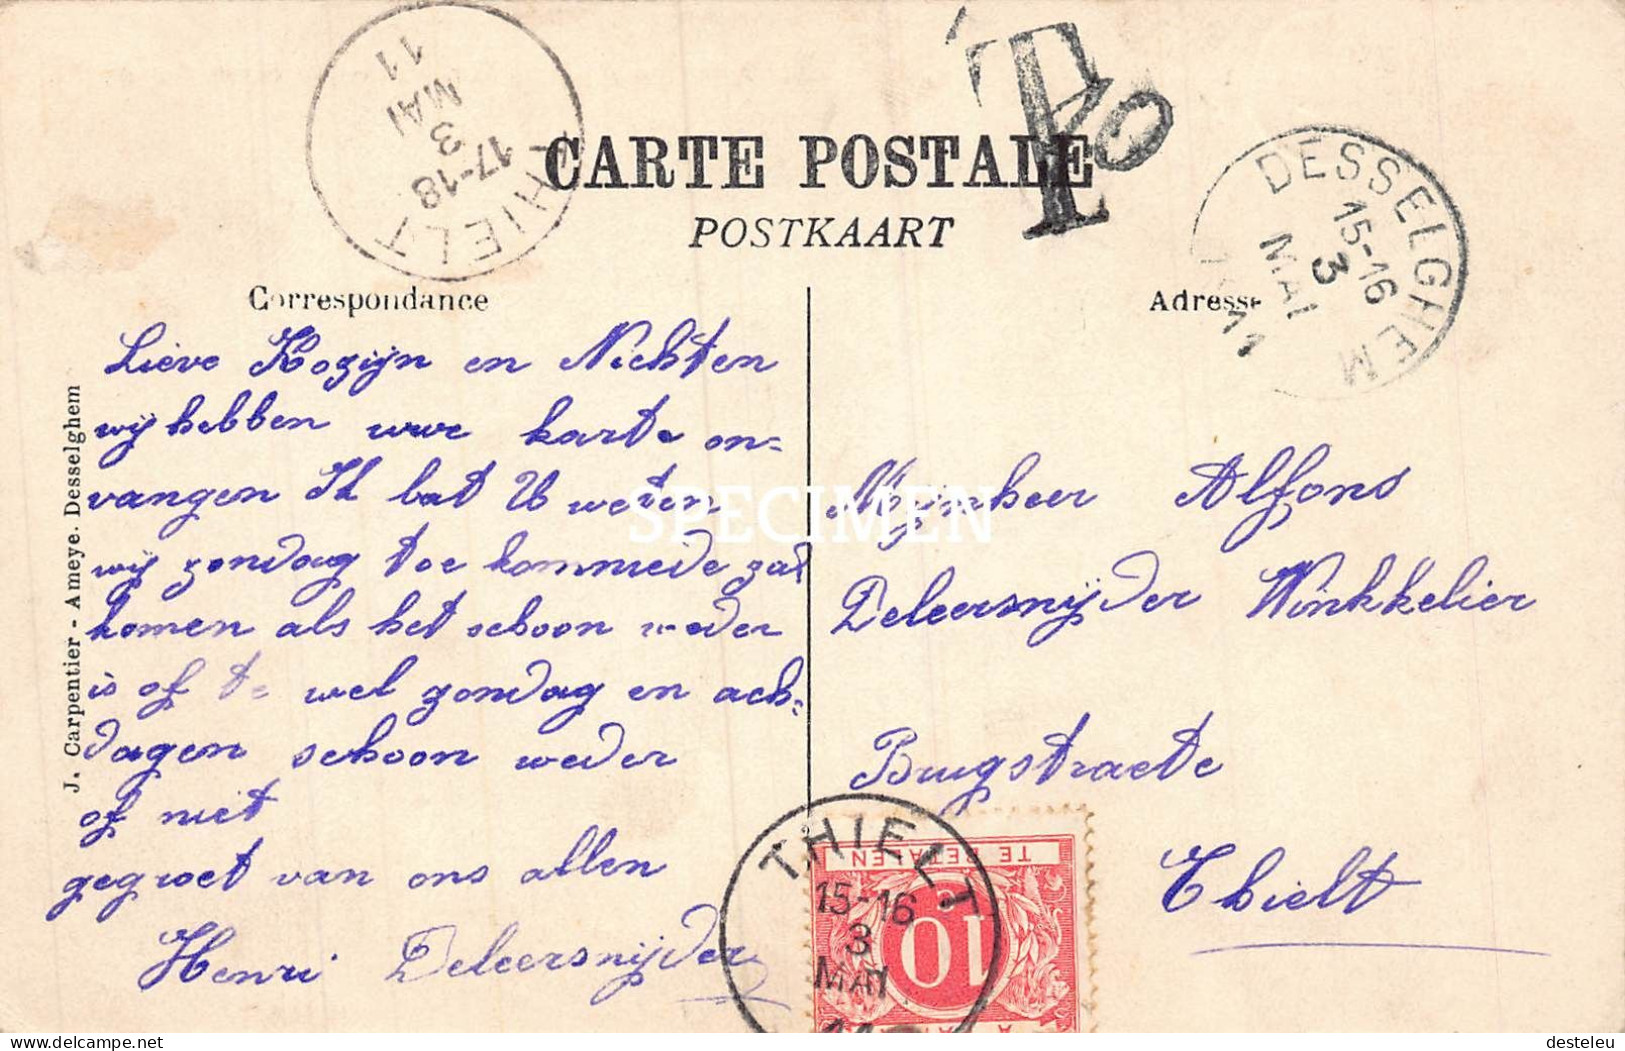 THIELT
17-18
3
MAI
11
T
10
CARTE POSTALE
POSTKAART
DESSELGHEM
15-16
3
MAI
11
Correspondance
Adresse
Lieve Kozijn en Nichten
wij hebben uwe karte on=
vangen Ik lat U weten
wij zondag toe kommede zal
komen als het schoon weder
is of te wel zondag en ach=
dagen schoon weder
of niet
gegroet van ons allen
Henri Deleersnijder
Mijnheer Alfons
Deleersnijder Winkkelier
Brugstraete
Thielt
J. Carpentier - Ameye. Desselghem
SPECIMEN
THIELT
15-16
3
MAI
11
TE BETALEN
10
delcampe.net
desteleu